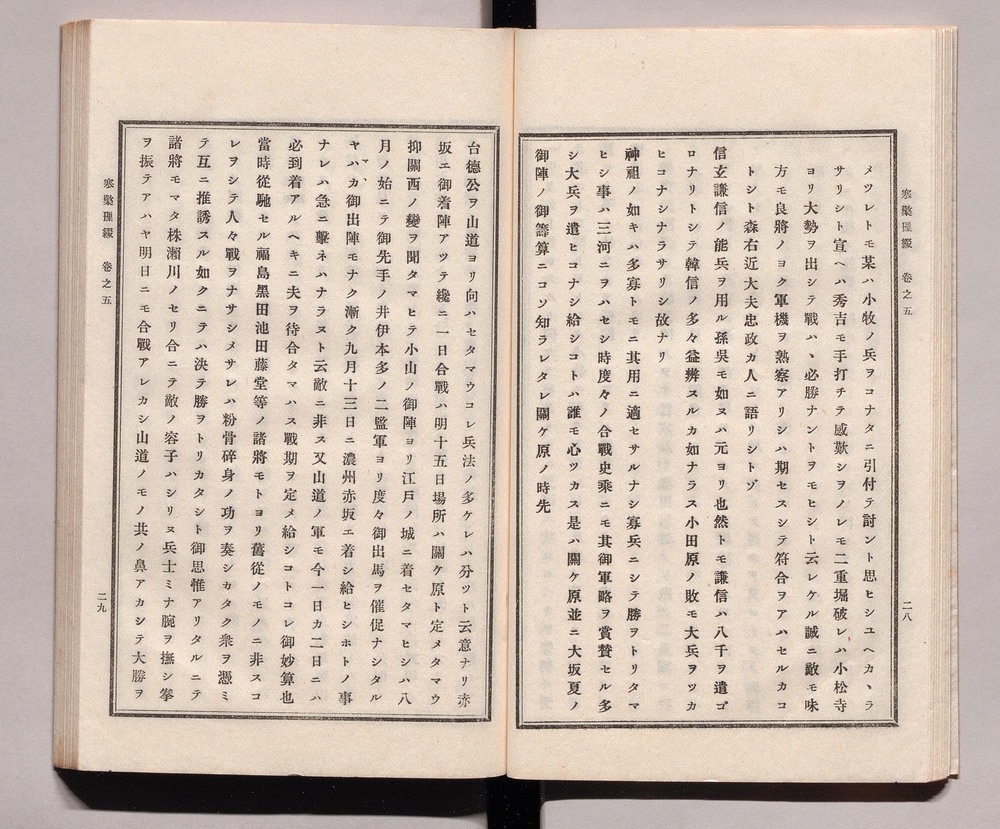 寒檠璅綴 卷之五
二八
メツレトモ某ハ小牧ノ兵ヲコナタニ引付テ討ント思ヒシユヘカヽラ
サリシト宣ヘハ秀吉モ手打チテ感歎シヲノレモ二重堀破レハ小松寺
ヨリ大勢ヲ出シテ戰ハヽ必勝ナントヲモヒシト云レケル誠ニ敵モ味
方モ良將ノヨク軍機ヲ熟察アリシハ期セスシテ符合ヲアハセルカコ
トシト森右近大夫忠政カ人ニ語リシトゾ
信玄謙信ノ能兵ヲ用ル孫吳モ如ヌハ元ヨリ也然トモ謙信ハ八千ヲ遣ゴ
ロナリトシテ韓信ノ多々益辨スルカ如ナラス小田原ノ敗モ大兵ヲツカ
ヒコナシナラサリシ故ナリ
神祖ノ如キハ多寡トモニ其用ニ適セサルナシ寡兵ニシテ勝ヲトリタマ
ヒシ事ハ三河ニヲハセシ時度々ノ合戰史乘ニモ其御軍略ヲ賞賛セル多
シ大兵ヲ遣ヒコナシ給シコトハ誰モ心ツカス是ハ關ケ原並ニ大坂夏ノ
御陣ノ御籌算ニコソ知ラレタレ關ケ原ノ時先
台德公ヲ山道ヨリ向ハセタマウコレ兵法ノ多ケレハ分ツト云意ナリ赤
坂エ御着陣アツテ纔ニ一日合戰ハ明十五日場所ハ關ケ原ト定メタマウ
抑關西ノ變ヲ聞タマヒテ小山ノ御陣ヨリ江戸ノ城ニ着セタマヒシハ八
月ノ始ニテ御先手ノ井伊本多ノ二監軍ヨリ度々御出馬ヲ催促ナシタル
ヤハカ御出陣モナク漸ク九月十三日ニ濃州赤坂エ着シ給ヒシホトノ事
ナレハ急ニ擊ネハナラヌト云敵ニ非ス又山道ノ軍モ今一日カ二日ニハ
必到着アルヘキニ夫ヲ待合タマハス戰期ヲ定メ給シコトコレ御妙算也
當時從馳セル福島黑田池田藤堂等ノ諸將モトヨリ舊從ノモノニ非スコ
レヲシテ人々戰ヲナサシメサレハ粉骨碎身ノ功ヲ奏シカタク衆ヲ憑ミ
テ互ニ推誘スル如クニテハ決テ勝ヲトリカタシト御思惟アリタルニテ
諸將モマタ株瀨川ノセリ合ニテ敵ノ容子ハシリヌ兵士ミナ腕ヲ撫シ拳
ヲ振テアハヤ明日ニモ合戰アレカシ山道ノモノ共ノ鼻アカシテ大勝ヲ
寒檠璅綴 卷之五
二九